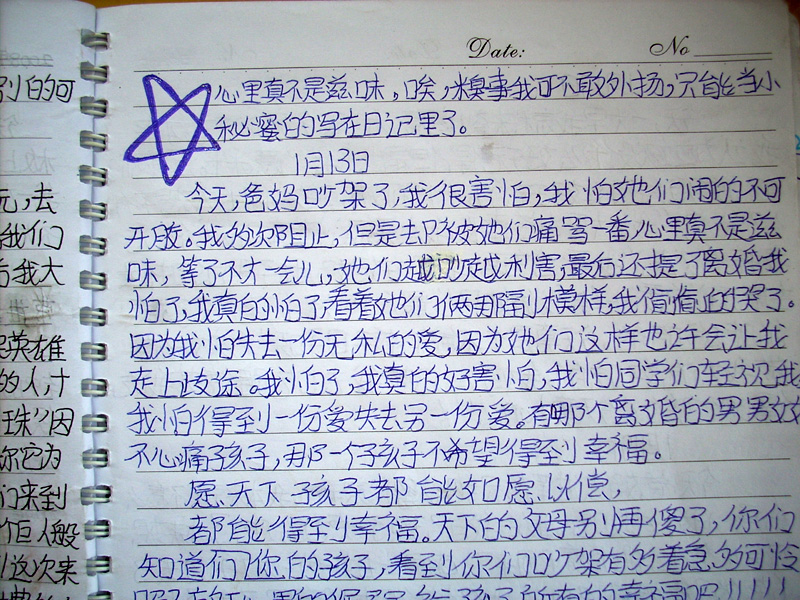 Date: No
别怕的可
心里真不是兹味,唉,糗事我可不敢外扬,只能当小
秘蜜的写在日记里了。
1月13日
元,去
今天,爸妈吵架了,我很害怕,我怕她们闹的不可
我们
开放。我多次阻止,但是去反被她们痛骂一番,心里真不是兹
后我大
味,等了不才一会儿,她们越吵越利害,最后还提了离婚我
怕了,我真的怕了,看着她们俩那副模样,我偷偷的哭了。
是英雄
因为我怕失去一份无私的爱,因为她们这样也许会让我
的人,十
走上歧途。我怕了,我真的好害怕,我怕同学们轻视我
珠”因
我怕得到一份爱失去另一份爱。有哪个离婚的男男女
你它为
不心痛孩子,那个孩子不希望得到幸福。
们来到
愿天下孩子都能如愿以偿,
个巨人般
都能得到幸福。天下的父母别再傻了,你们
这次来
知道们你的孩子,看到你们吵架有多着急多可怜